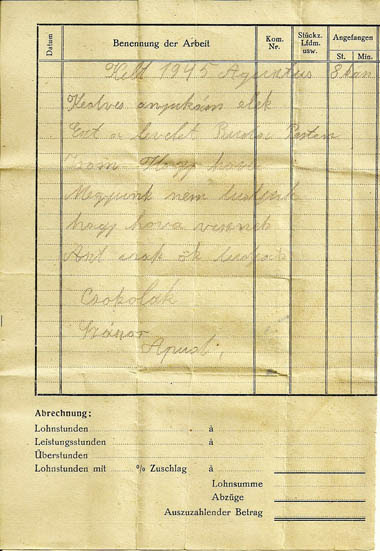 Datum
Benennung der Arbeit
Kom. Nr.
Stückz. Lfdm. usw.
Angefangen
St. Min.
Kelt 1945 Agustus 8kan
Kedves anyukám elek
Ezt a levelet Pusztai Postán
Hogy hova
Megyunk nem tudjuk
hogy hova visznek
Azt csak ők tudják
Csokolak
Apud
Abrechnung:
Lohnstunden à
Leistungsstunden à
Überstunden
Lohnstunden mit % Zuschlag à
Lohnsumme
Abzüge
Auszuzahlender Betrag